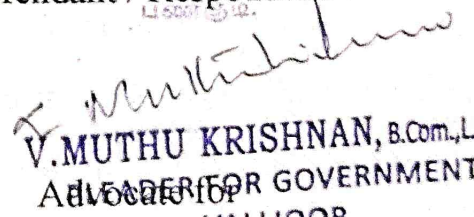 endant / Resp
V. Muthukrishnan
V.MUTHU KRISHNAN, B.Com.,L
Advocate for
PLEADER FOR GOVERNMENT